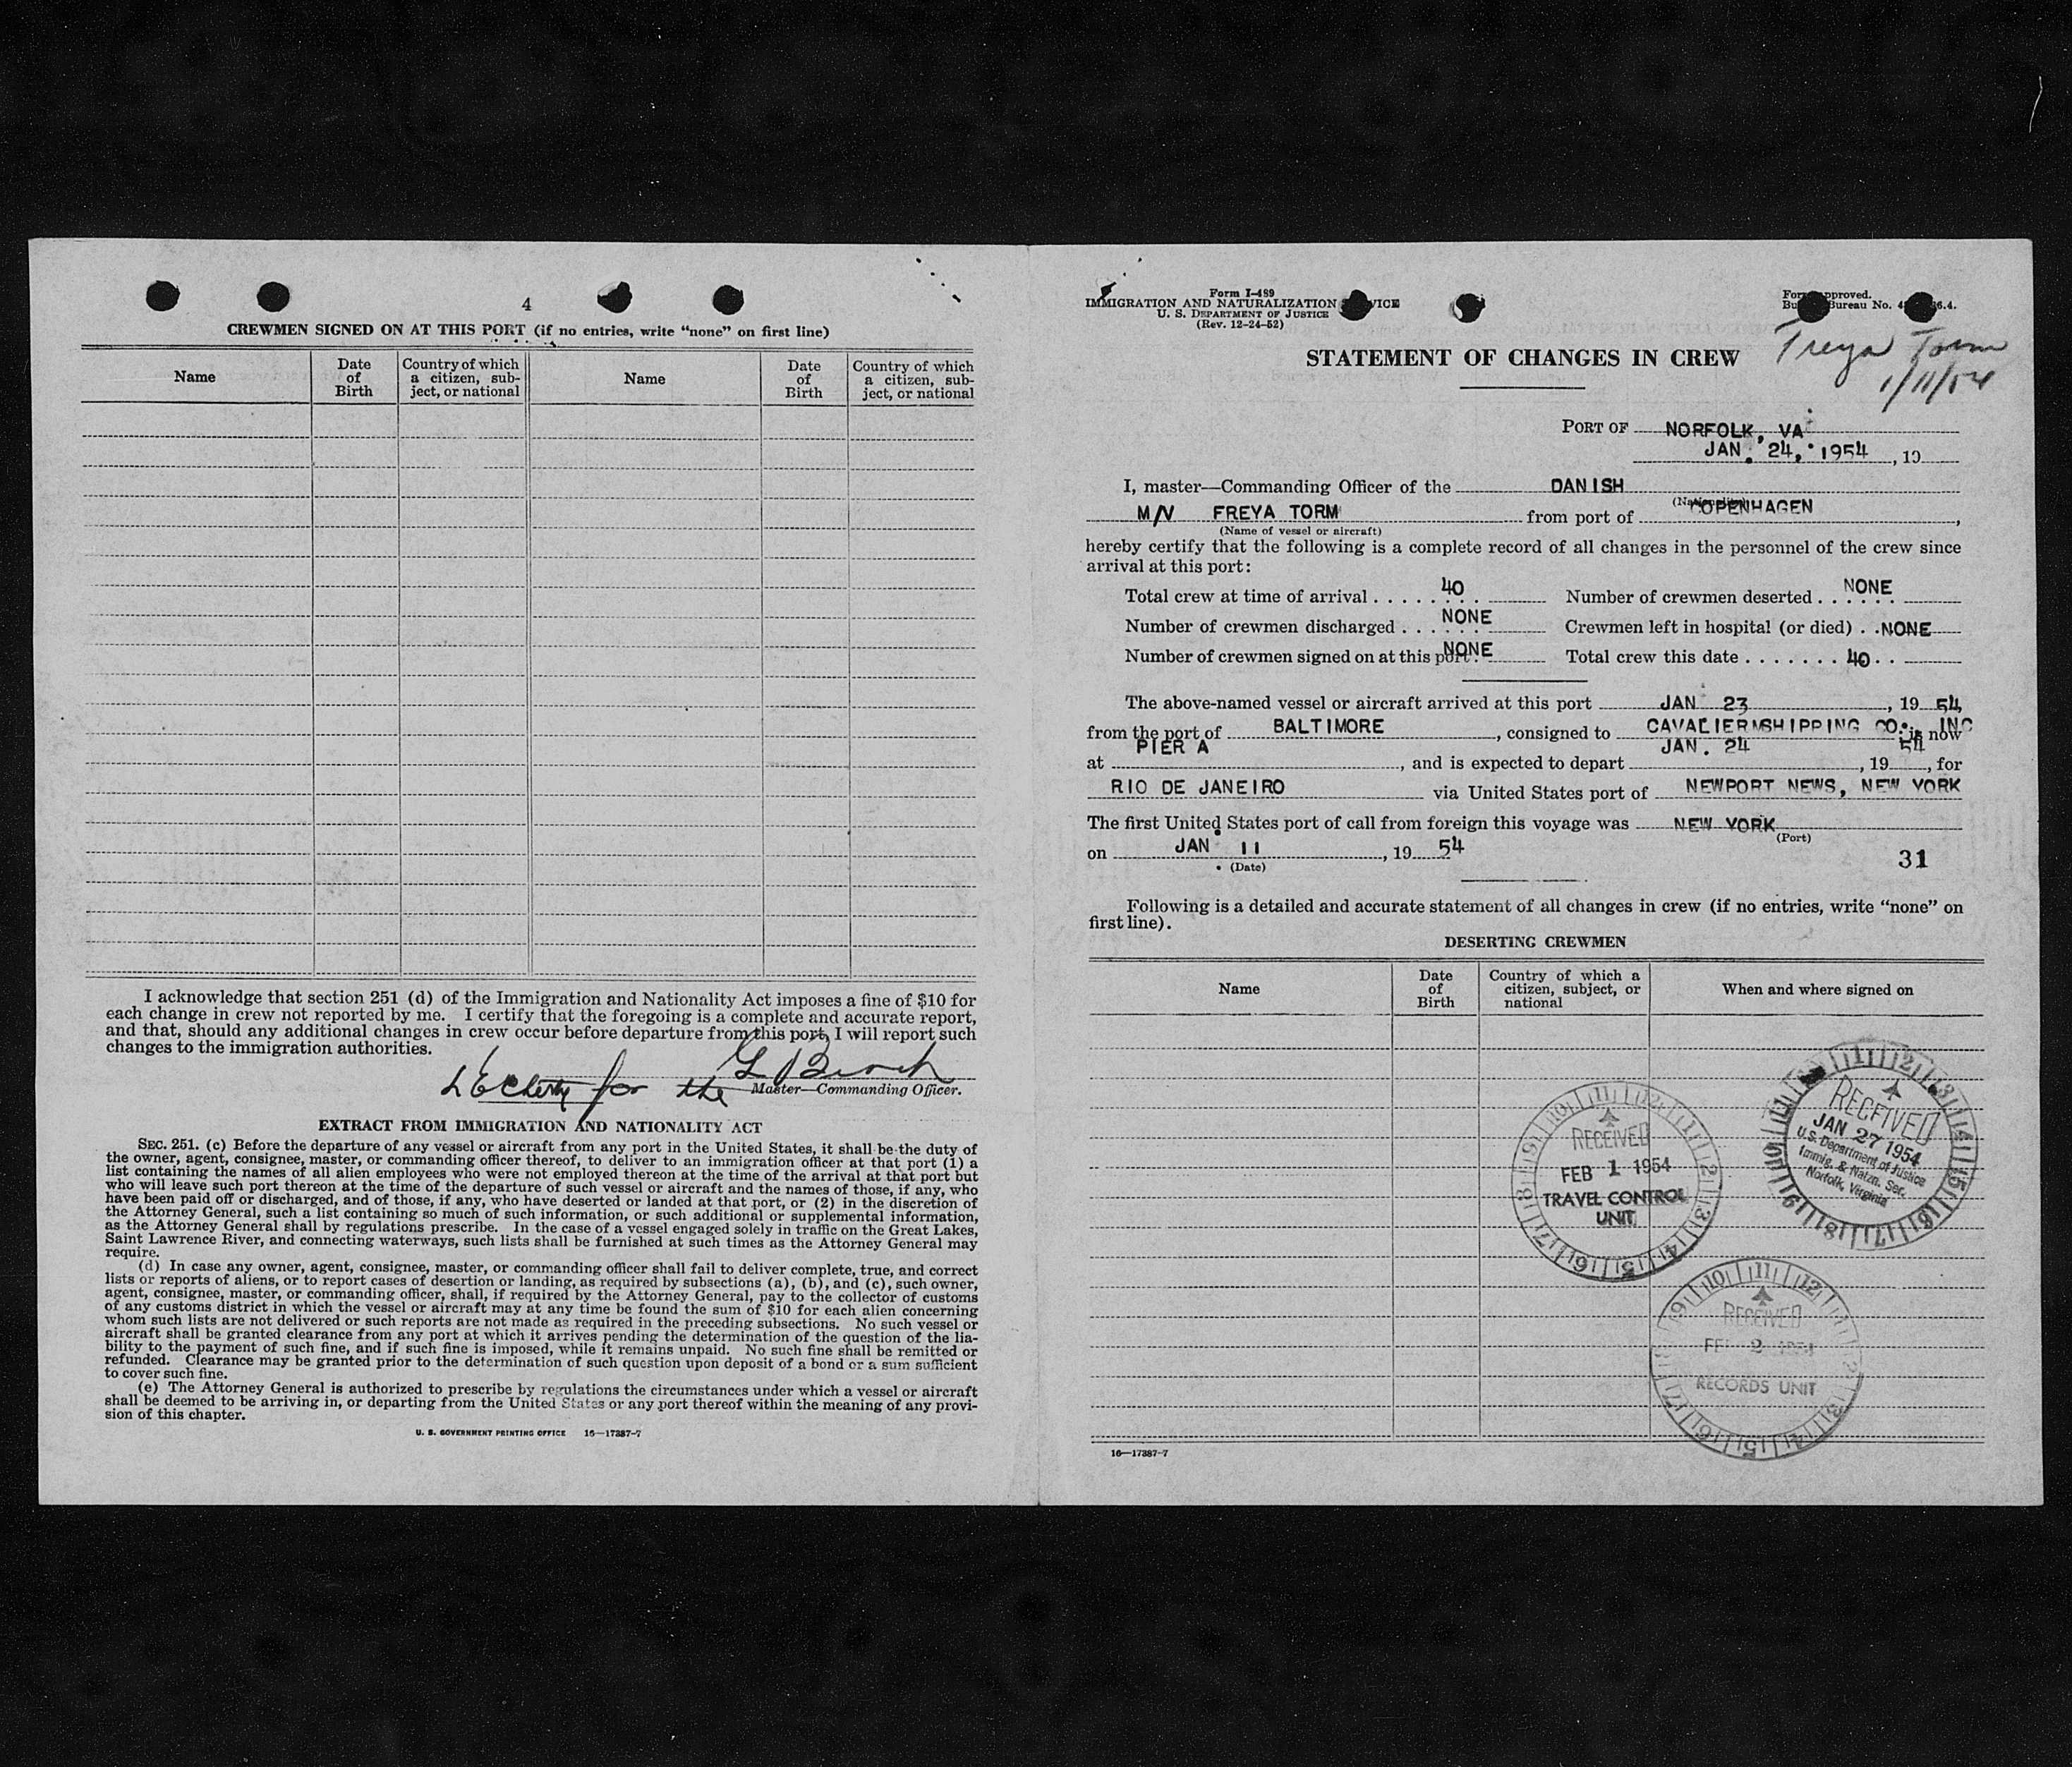 4
CREWMEN SIGNED ON AT THIS PORT (if no entries, write "none" on first line)
Name
Date of Birth
Country of which a citizen, sub-ject, or national
Name
Date of Birth
Country of which a citizen, sub-ject, or national
I acknowledge that section 251 (d) of the Immigration and Nationality Act imposes a fine of $10 for
each change in crew not reported by me. I certify that the foregoing is a complete and accurate report,
and that, should any additional changes in crew occur before departure from this port, I will report such
changes to the immigration authorities.
for the Master—Commanding Officer.
EXTRACT FROM IMMIGRATION AND NATIONALITY ACT
SEC. 251. (c) Before the departure of any vessel or aircraft from any port in the United States, it shall be the duty of
the owner, agent, consignee, master, or commanding officer thereof, to deliver to an immigration officer at that port (1) a
list containing the names of all alien employees who were not employed thereon at the time of the arrival at that port but
who will leave such port thereon at the time of the departure of such vessel or aircraft and the names of those, if any, who
have been paid off or discharged, and of those, if any, who have deserted or landed at that port, or (2) in the discretion of
the Attorney General, such a list containing so much of such information, or such additional or supplemental information,
as the Attorney General shall by regulations prescribe. In the case of a vessel engaged solely in traffic on the Great Lakes,
Saint Lawrence River, and connecting waterways, such lists shall be furnished at such times as the Attorney General may
require.
(d) In case any owner, agent, consignee, master, or commanding officer shall fail to deliver complete, true, and correct
lists or reports of aliens, or to report cases of desertion or landing, as required by subsections (a), (b), and (c), such owner,
agent, consignee, master, or commanding officer, shall, if required by the Attorney General, pay to the collector of customs
of any customs district in which the vessel or aircraft may at any time be found the sum of $10 for each alien concerning
whom such lists are not delivered or such reports are not made as required in the preceding subsections. No such vessel or
aircraft shall be granted clearance from any port at which it arrives pending the determination of the question of the lia-
bility to the payment of such fine, and if such fine is imposed, while it remains unpaid. No such fine shall be remitted or
refunded. Clearance may be granted prior to the determination of such question upon deposit of a bond or a sum sufficient
to cover such fine.
(e) The Attorney General is authorized to prescribe by regulations the circumstances under which a vessel or aircraft
shall be deemed to be arriving in, or departing from the United States or any port thereof within the meaning of any provi-
sion of this chapter.
U. S. GOVERNMENT PRINTING OFFICE 16—17387-7
Form I-489
IMMIGRATION AND NATURALIZATION
U. S. DEPARTMENT OF JUSTICE
(Rev. 12-24-52)
approved.
Bureau No.
Freya Torm
1/11/54
STATEMENT OF CHANGES IN CREW
PORT OF NORFOLK, VA
JAN. 24, 1954, 19
I, master—Commanding Officer of the DANISH
(Nationality)
M/V FREYA TORM from port of COPENHAGEN,
(Name of vessel or aircraft)
hereby certify that the following is a complete record of all changes in the personnel of the crew since
arrival at this port:
Total crew at time of arrival . . . . 40 Number of crewmen deserted . . . NONE
Number of crewmen discharged . . . NONE Crewmen left in hospital (or died) . . NONE
Number of crewmen signed on at this port . NONE Total crew this date . . . . . . . 40
The above-named vessel or aircraft arrived at this port JAN 23, 19 54,
from the port of BALTIMORE, consigned to CAVALIER SHIPPING CO. INC is now
at PIER A, and is expected to depart JAN. 24, 19 54, for
RIO DE JANEIRO via United States port of NEWPORT NEWS, NEW YORK
The first United States port of call from foreign this voyage was NEW YORK
(Port)
on JAN 11, 19 54
(Date)
31
Following is a detailed and accurate statement of all changes in crew (if no entries, write "none" on
first line).
DESERTING CREWMEN
Name
Date of Birth
Country of which a citizen, subject, or national
When and where signed on
RECEIVED
JAN 27 1954
U.S. Department of Justice
Immig. & Natzn. Ser.
Norfolk, Virginia
RECEIVED
FEB 1 1954
TRAVEL CONTROL
UNIT
RECEIVED
FEB 2 1954
RECORDS UNIT
16—17387-7